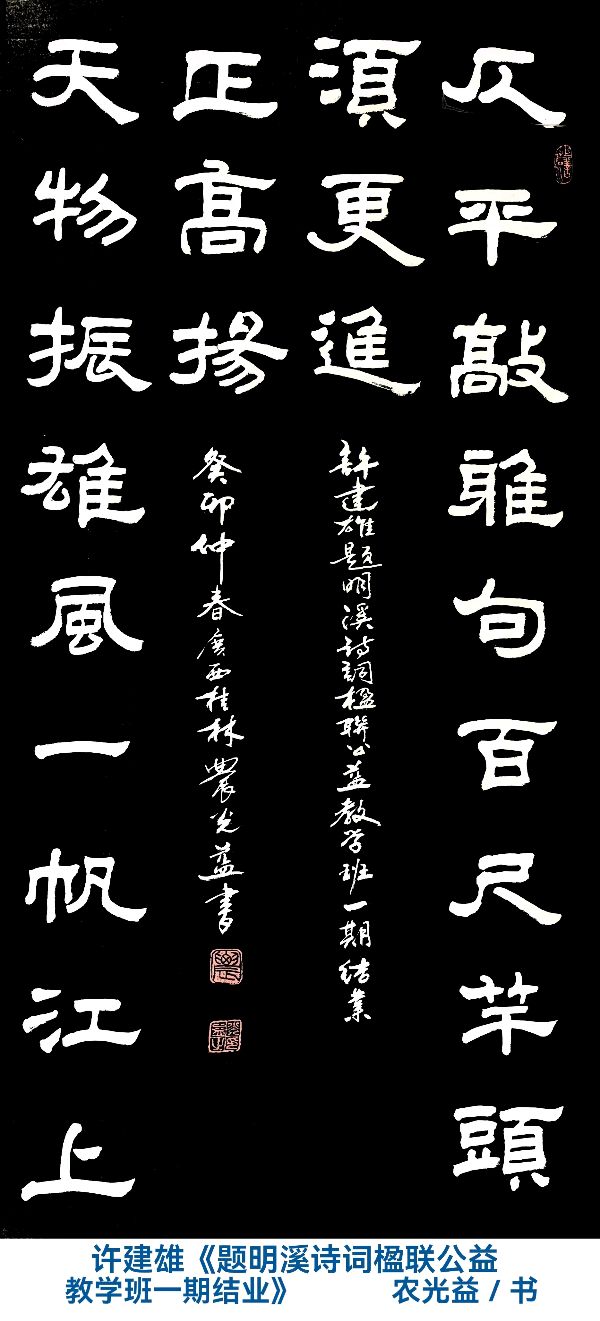 仄平敲雅句百尺竿頭
須更進
天物振雄風一帆江上
正高揚
許建雄題明溪詩詞楹聯公益教学班一期结業
癸卯仲春廣西桂林農光益書
许建雄《题明溪诗词楹联公益
教学班一期结业》 农光益 / 书